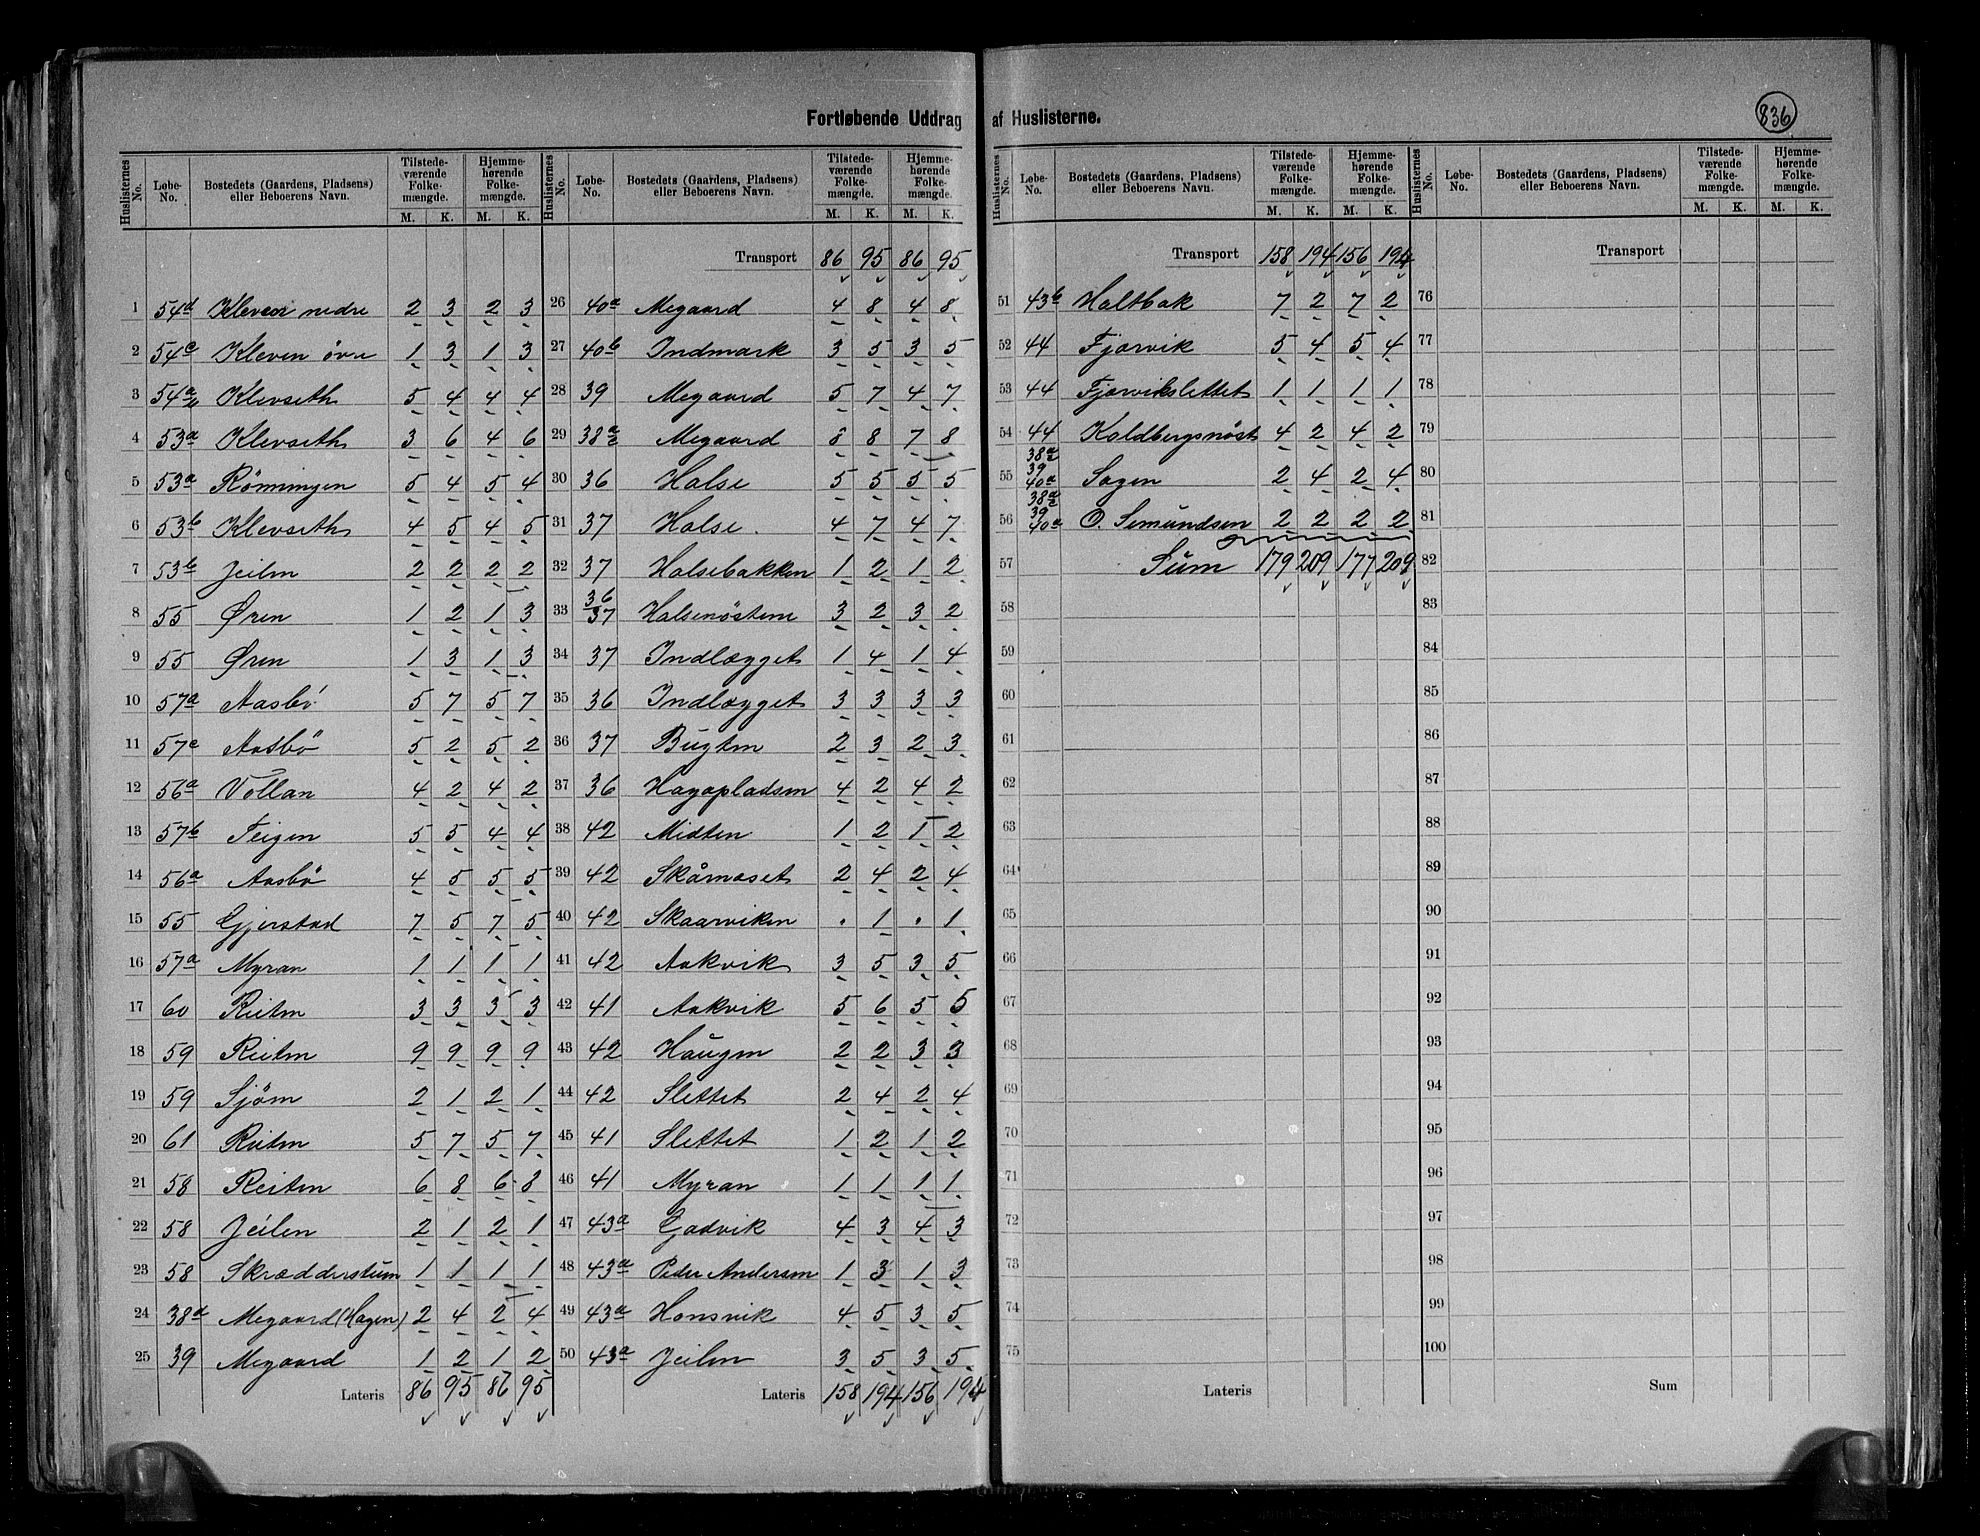 Fortløbende Uddrag af Huslisterne.
836
Huslisternes No. Løbe-No. Bostedets (Gaardens, Pladsens) eller Beboerens Navn. Tilstedeværende Folkemængde. M. K. Hjemmehørende Folkemængde. M. K.
1 54d Kleven nedre 2 3 2 3
2 54c Kleven övre 1 3 1 3
3 54a Klevseth 5 4 4 4
4 53a Klevseth 3 6 4 6
5 53a Rönningen 5 4 5 4
6 53b Klevseth 4 5 4 5
7 53b Jeilen 2 2 2 2
8 55 Øren 1 2 1 3
9 55 Øren 1 3 1 3
10 57a Aasbö 5 7 5 7
11 57c Aasbö 5 2 5 2
12 56a Vollan 4 2 4 2
13 57b Teigen 5 5 4 4
14 56a Aasbö 4 5 5 5
15 55 Gjerstad 7 5 7 5
16 57a Myran 1 1 1 1
17 60 Reiten 3 3 3 3
18 59 Reiten 9 9 9 9
19 59 Sjöen 2 1 2 1
20 61 Reiten 5 7 5 7
21 58 Reiten 6 8 6 8
22 58 Jeilen 2 1 2 1
23 58 Skrædderstuen 1 1 1 1
24 38d Megaard (Hagen) 2 4 2 4
25 39 Megaard 1 2 1 2
Lateris 86 95 86 95
Huslisternes No. Løbe-No. Bostedets (Gaardens, Pladsens) eller Beboerens Navn. Tilstedeværende Folkemængde. M. K. Hjemmehørende Folkemængde. M. K.
Transport 86 95 86 95
26 40a Megaard 4 8 4 8
27 40b Indmark 3 5 3 5
28 39 Megaard 5 7 4 7
29 38a2 Megaard 8 8 7 8
30 36 Halse 5 5 5 5
31 37 Halse 4 7 4 7
32 37 Halsebakken 1 2 1 2
33 36 37 Halsenöstene 3 2 3 2
34 37 Indlægget 1 4 1 4
35 36 Indlægget 3 3 3 3
36 37 Bugten 2 3 2 3
37 36 Hagapladsen 4 2 4 2
38 42 Midten 1 2 1 2
39 42 Skårnæset 2 4 2 4
40 42 Skaarviken . 1 . 1
41 42 Aakvik 3 5 3 5
42 41 Aakvik 5 6 5 5
43 42 Haugen 2 2 3 3
44 42 Slettet 2 4 2 4
45 41 Slettet 1 2 1 2
46 41 Myran 1 1 1 1
47 43a Gadvik 4 3 4 3
48 43a Peder Andersen 1 3 1 3
49 43a Honsvik 4 5 3 5
50 43a Jeilen 3 5 3 5
Lateris 158 194 156 194
Huslisternes No. Løbe-No. Bostedets (Gaardens, Pladsens) eller Beboerens Navn. Tilstedeværende Folkemængde. M. K. Hjemmehørende Folkemængde. M. K.
Transport 158 194 156 194
51 43b Holtbak 7 2 7 2
52 44 Fjærvik 5 4 5 4
53 44 Fjærvikslettet 1 1 1 1
54 44 Koldbergsnöst 4 2 4 2
55 38a2 39 40a Sagen 2 4 2 4
56 38a2 39 40a O. Semundsen 2 2 2 2
57 Sum 179 209 177 209
58
59
60
61
62
63
64
65
66
67
68
69
70
71
72
73
74
75
Lateris
Huslisternes No. Løbe-No. Bostedets (Gaardens, Pladsens) eller Beboerens Navn. Tilstedeværende Folkemængde. M. K. Hjemmehørende Folkemængde. M. K.
Transport
76
77
78
79
80
81
82
83
84
85
86
87
88
89
90
91
92
93
94
95
96
97
98
99
100
Sum